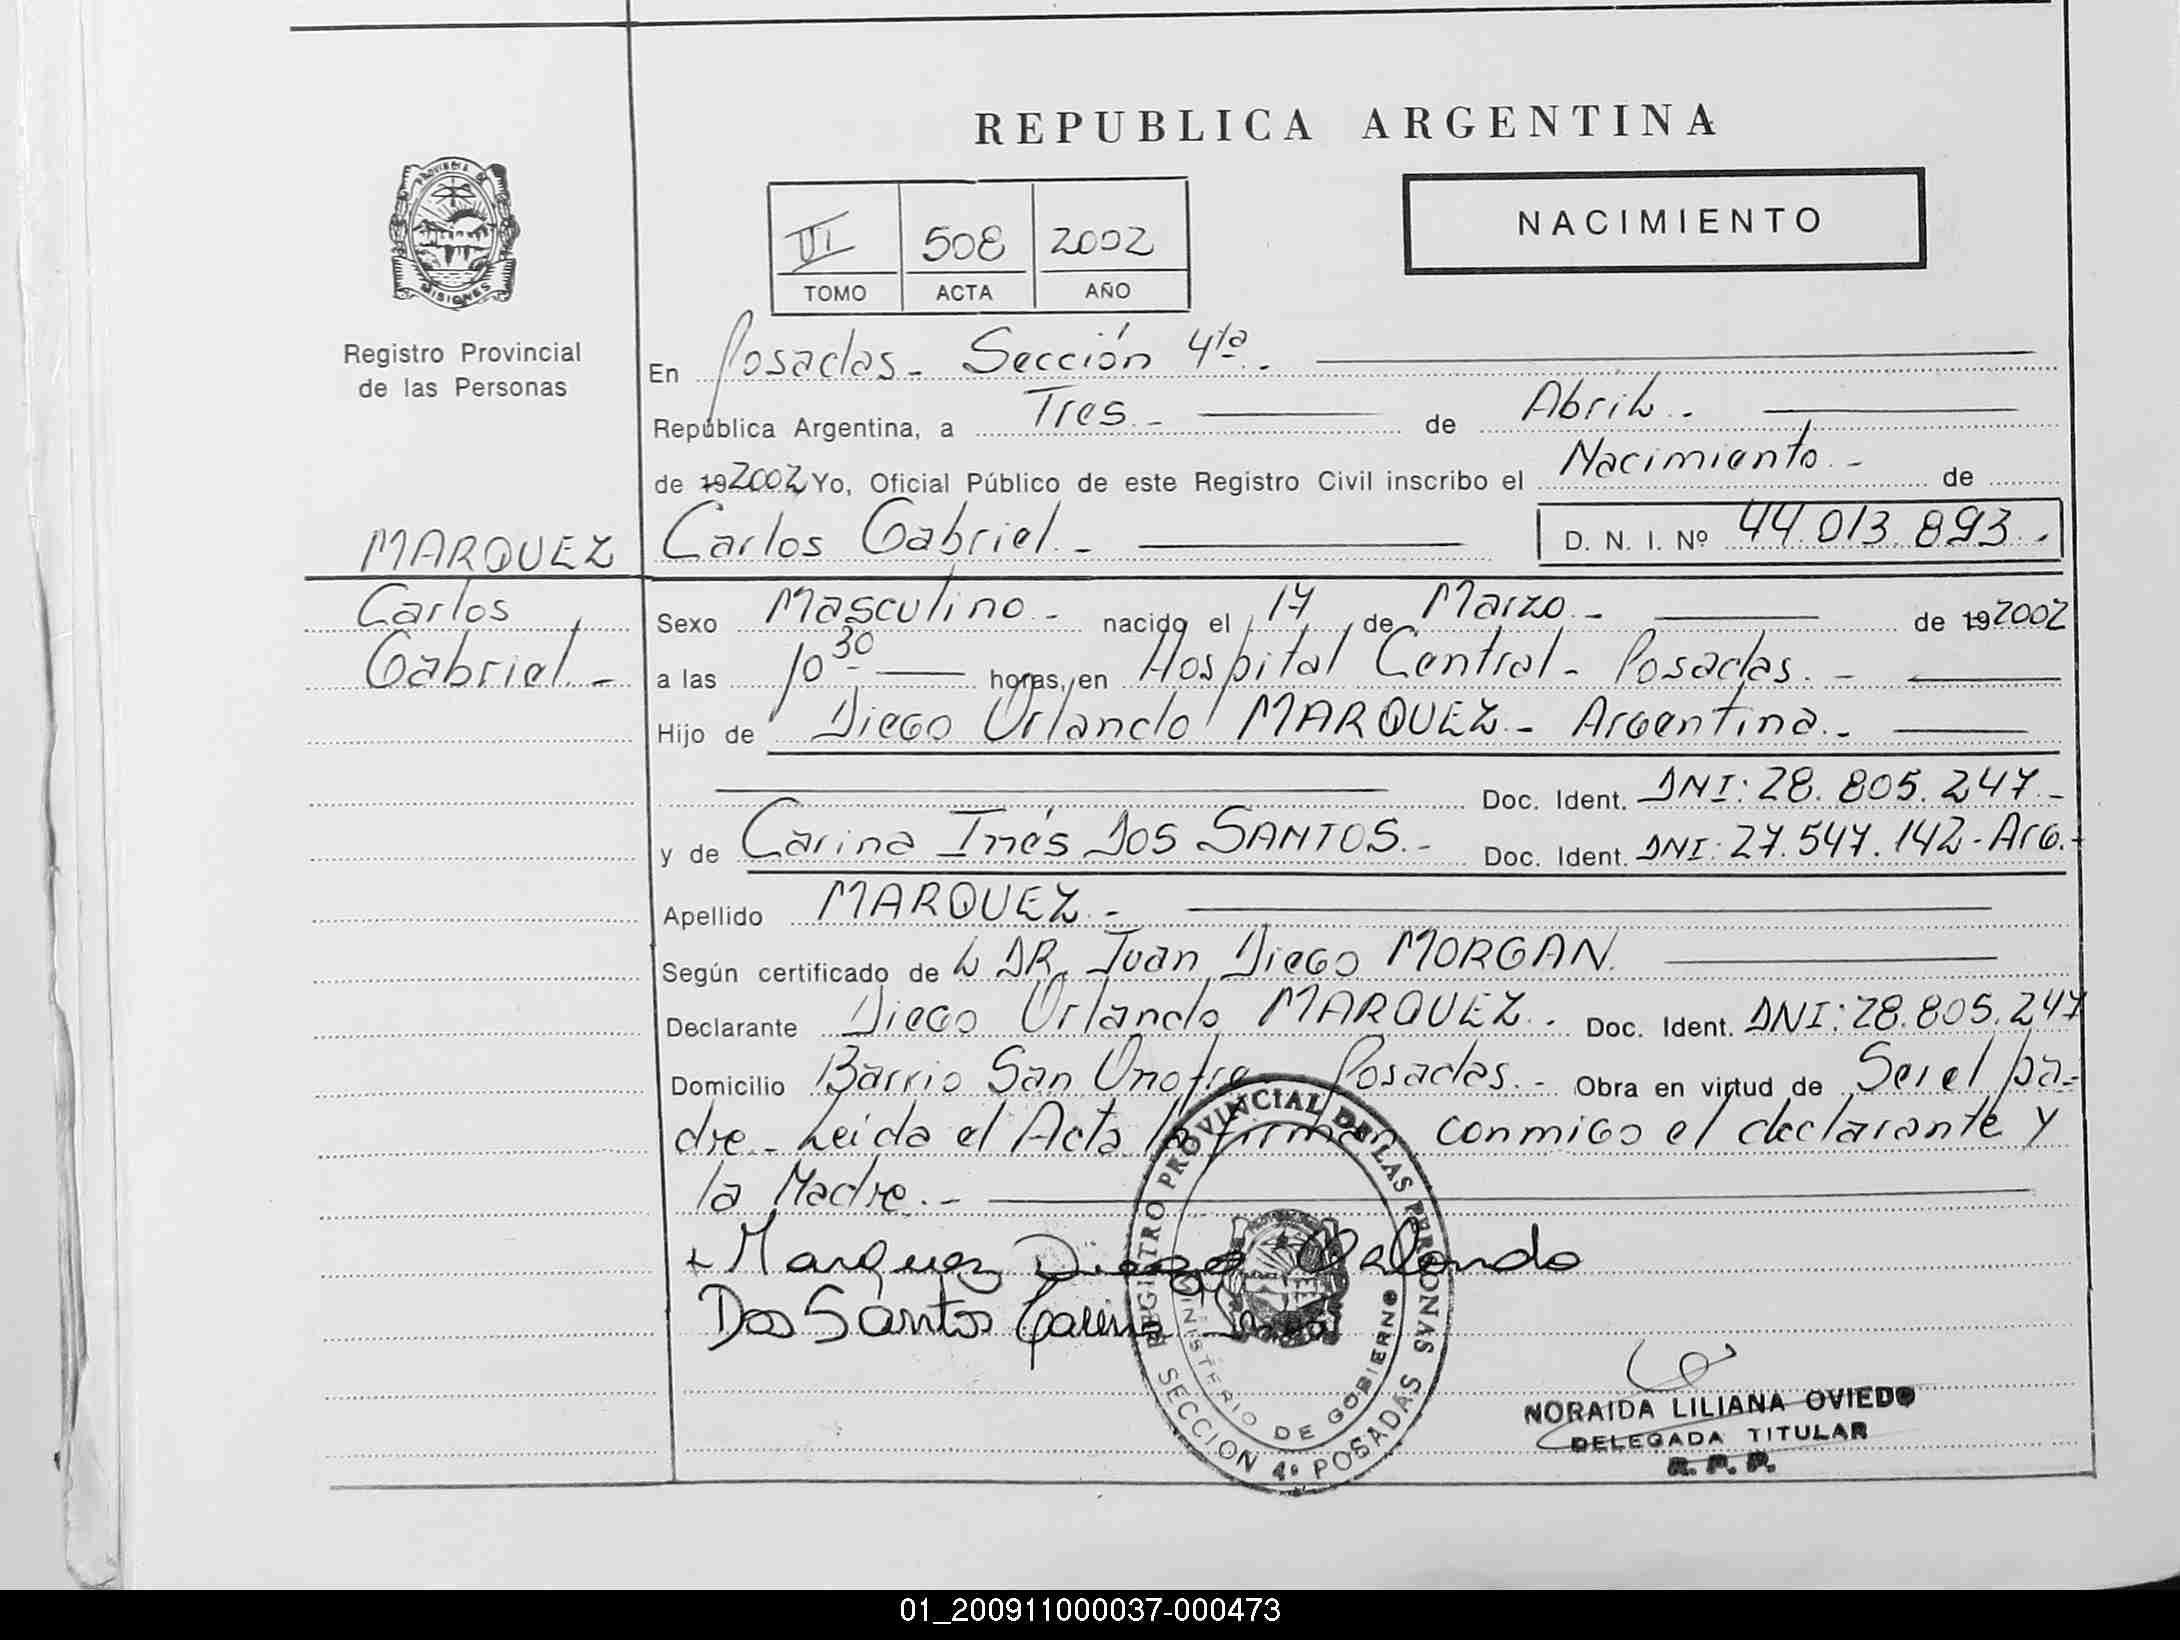 REPUBLICA ARGENTINA
PROVINCIA DE
MISIONES
Registro Provincial
de las Personas
NACIMIENTO
III 508 2002
TOMO ACTA AÑO
En Posadas - Sección 4ta.-
República Argentina, a Tres.- de Abril.-
de 19 2002 Yo, Oficial Público de este Registro Civil inscribo el Nacimiento.- de
MARQUEZ
Carlos Gabriel.- D. N. I. Nº 44.013.893.-
Carlos
Gabriel.-
Sexo Masculino.- nacido el 17 de Marzo.- de 19 2002
a las 10 30 horas, en Hospital Central - Posadas.-
Hijo de Diego Orlando MARQUEZ.- Argentina.-
Doc. Ident. DNI: 28.805.247.-
y de Carina Inés DOS SANTOS.- Doc. Ident. DNI: 27.547.142- Arg.-
Apellido MARQUEZ.-
Según certificado de L DR. Juan Diego MORGAN.
Declarante Diego Orlando MARQUEZ. Doc. Ident. DNI: 28.805.247
Domicilio Barrio San Onofre Posadas.- Obra en virtud de Ser el pa-
dre - Leida el Acta la firman conmigo el declarante y
la Madre.-
Marquez Diego Orlando
Dos Santos Carina Inés
REGISTRO PROVINCIAL DE LAS PERSONAS
MINISTERIO DE GOBIERNO
SECCION 4ª POSADAS
NORAIDA LILIANA OVIEDO
DELEGADA TITULAR
R. P. P.
01_200911000037-000473